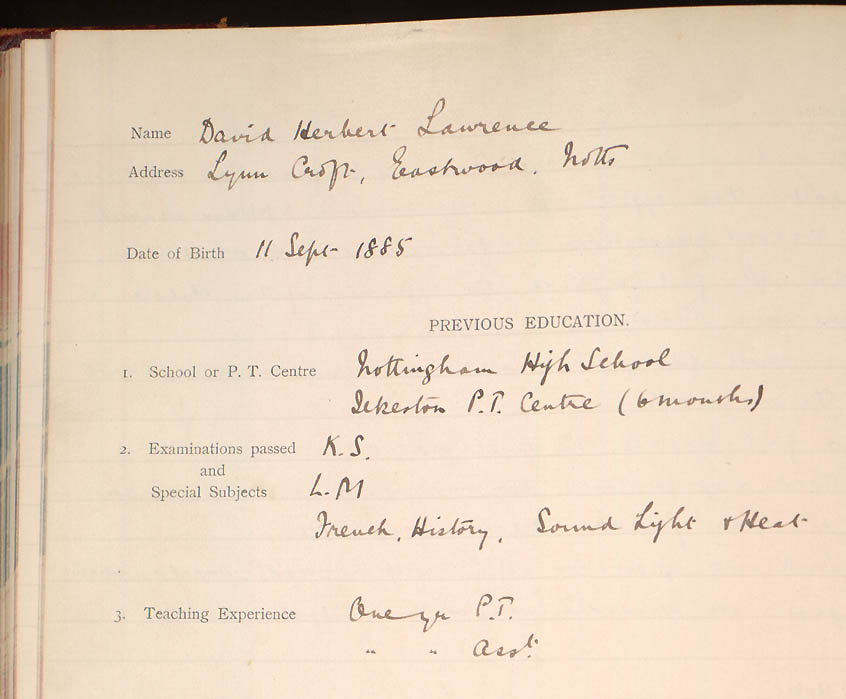 Name David Herbert Lawrence
Address Lynn Croft, Eastwood. Notts
Date of Birth 11 Sept 1885
PREVIOUS EDUCATION.
1. School or P. T. Centre Nottingham High School
Ilkeston P.T. Centre (6 months)
2. Examinations passed K.S.
and
Special Subjects L.M
French, History, Sound Light & Heat
3. Teaching Experience One yr P.T.
" " Asst.